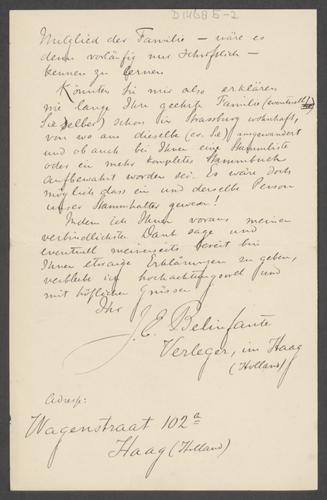 D14685-2
Mitglied der Familie – wäre es
denn vorläufig nur schriftlich –
kennen zu lernen.
Könnten Sie mir also erklären
wie lange Ihre geehrte Familie (eventuell
Sie selber) schon in Strassburg wohnhaft,
von wo aus dieselbe (ev. Sie) ausgewandert
und ob auch bei Ihnen eine Stammliste
oder ein mehr komplettes Stammbuch
aufbewahrt worden sei. Es wäre doch
möglich dass ein und derselbe Person
unser Stammhalter gewesen!
Indem ich Ihnen voraus meinen
verbindlichsten Dank sage und
eventuell meinerseits bereit bin
Ihnen etwaige Erklärungen zu geben,
verbleibe ich hochachtungsvoll und
mit höflichen Grüssen
Ihr
J. E. Belinfante
Verleger, im Haag
(Holland)
Adresse:
Wagenstraat 102a
Haag (Holland)